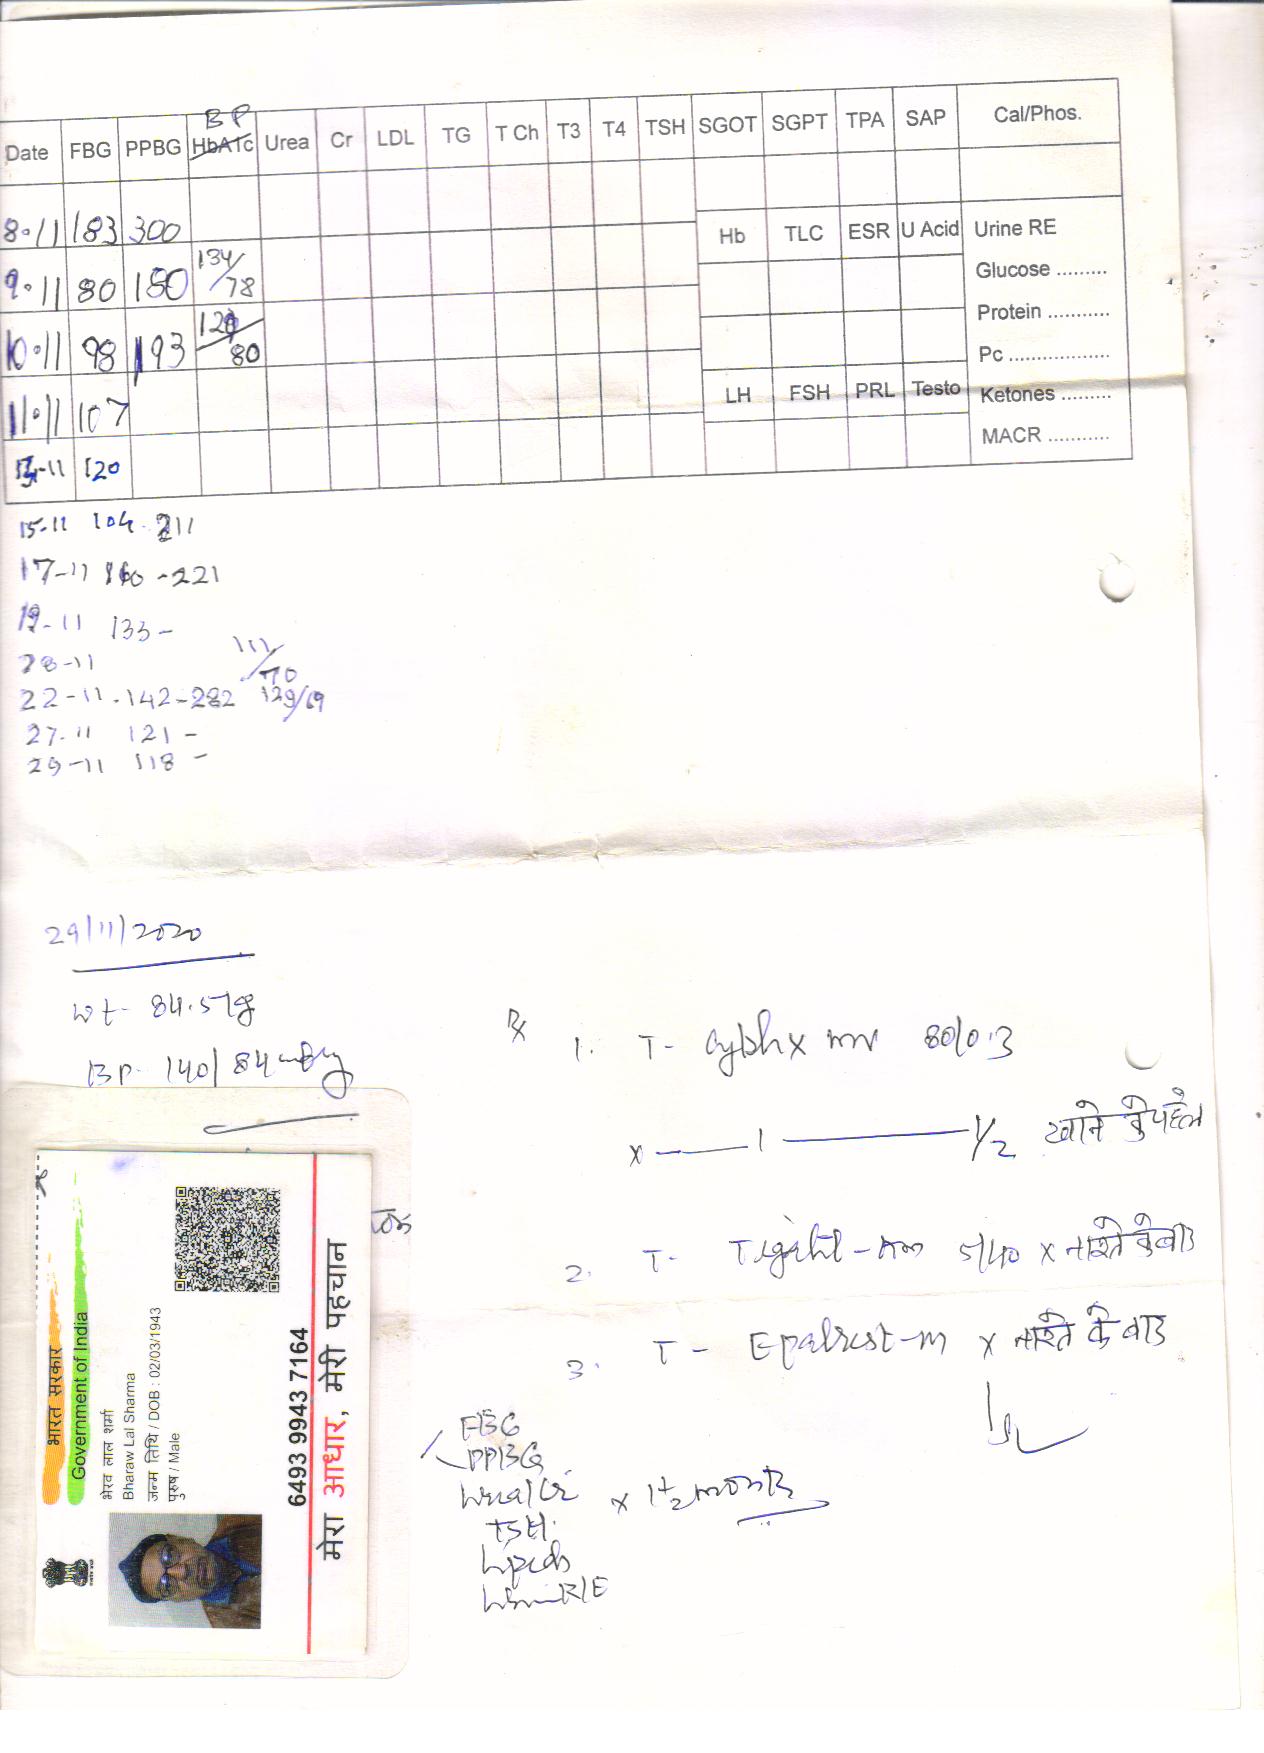 BP
Date FBG PPBG HbA1c Urea Cr LDL TG T Ch T3 T4 TSH SGOT SGPT TPA SAP Cal/Phos.
8.11 183 300
Hb TLC ESR U Acid Urine RE
9.11 80 180 134/78
Glucose .........
Protein ...........
10.11 98 193 80
Pc ..................
11.11 107
LH FSH PRL Testo Ketones .........
MACR ...........
-11 120
15-11 104 - 211
17-11 -221
19-11 133 -
111/70
28-11
22-11 - 142 - 282 129/69
27-11 121 -
29-11 118 -
29/11/2020
wt - 84.5 kg
BP - 140/84 mmHg
Rx
1. T- mv 80/0.3
x — 1 — 1/2 खाने के पहले
2. T- 5/40 x नाश्ते के बाद
3. T - Epalrest-m x नाश्ते के बाद
FBG
PPBG
Urea/Cr x 1 1/2 month
TSH
Lipids
Urine R/E
भारत सरकार
Government of India
भेरव लाल शर्मा
Bharaw Lal Sharma
जन्म तिथि / DOB : 02/03/1943
पुरुष / Male
6493 9943 7164
मेरा आधार, मेरी पहचान